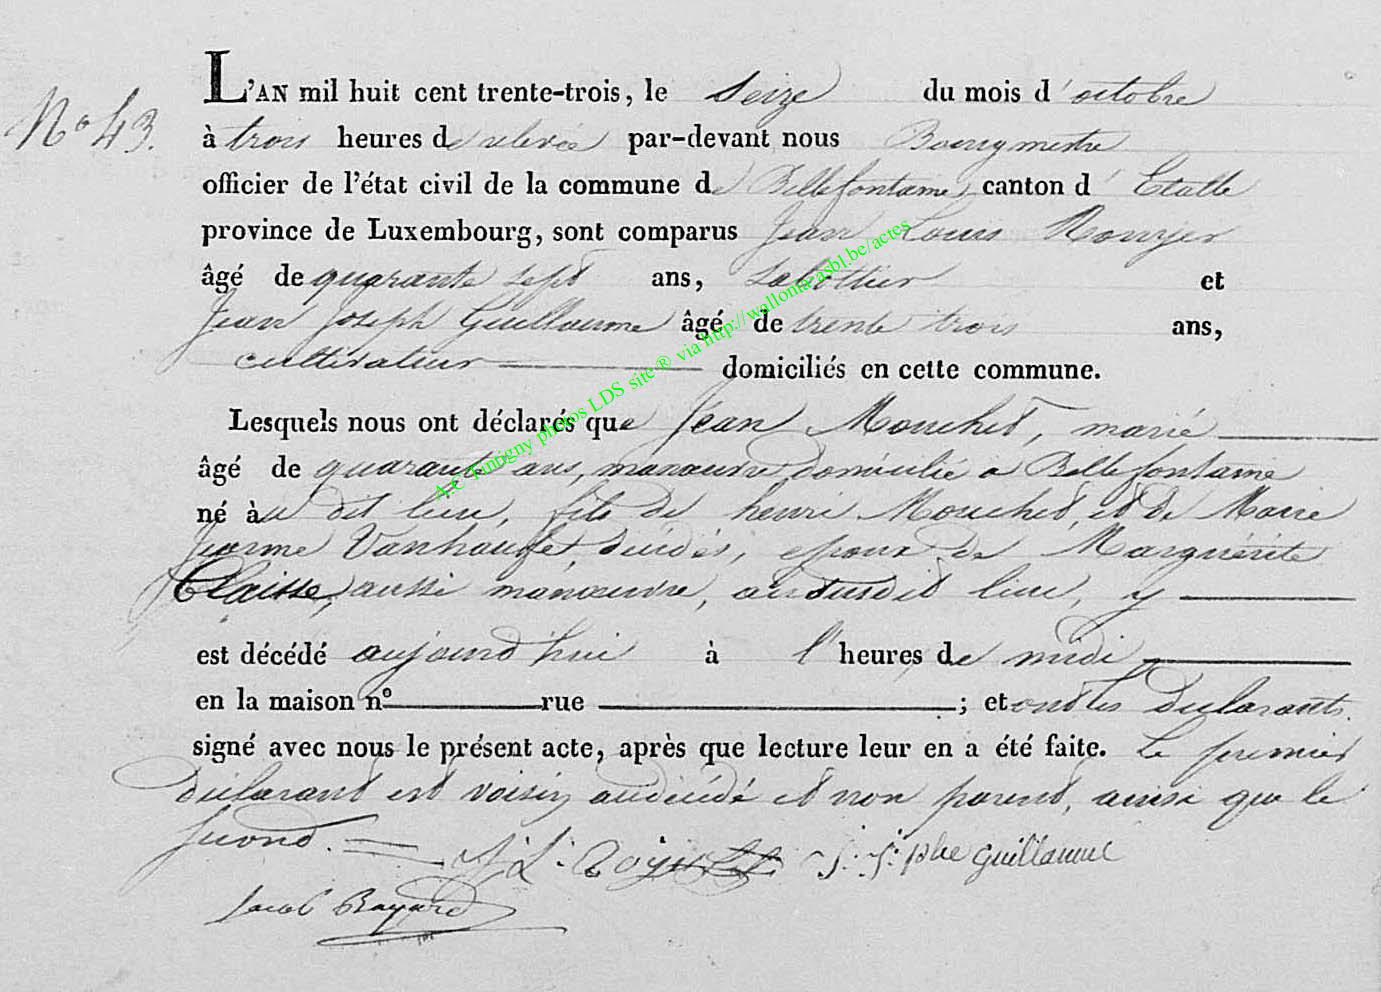 N° 43.
L'AN mil huit cent trente-trois, le Seize du mois d'octobre
à trois heures de relevée par-devant nous Bourgmestre
officier de l'état civil de la commune de Bellefontaine canton d'Etalle
province de Luxembourg, sont comparus Jean Louis
âgé de quarante sept ans, sabottier et
Jean Joseph Guillaume âgé de trente trois ans,
cultivateur domiciliés en cette commune.
Lesquels nous ont déclarés que Jean Mouchet, marié
âgé de quarante ans, manœuvre domicilié à Bellefontaine
né à au dit lieu, fils de henri Mouchet, et de Marie
Jeanne décédés, epoux de Marguérite
Claisse, aussi manœuvre, audusdit lieu, y
est décédé aujourd'hui à l'heures, de midi
en la maison n° rue ; et ont les déclarants
signé avec nous le présent acte, après que lecture leur en a été faite. Le premier
déclarant est voisin audécédé et non parent, ainsi que le
second.
J. L. J. J:phe Guillaume
Jacob Bayard
A.C Tintigny photos LDS site ® via http://wallonia-asbl.be/actes